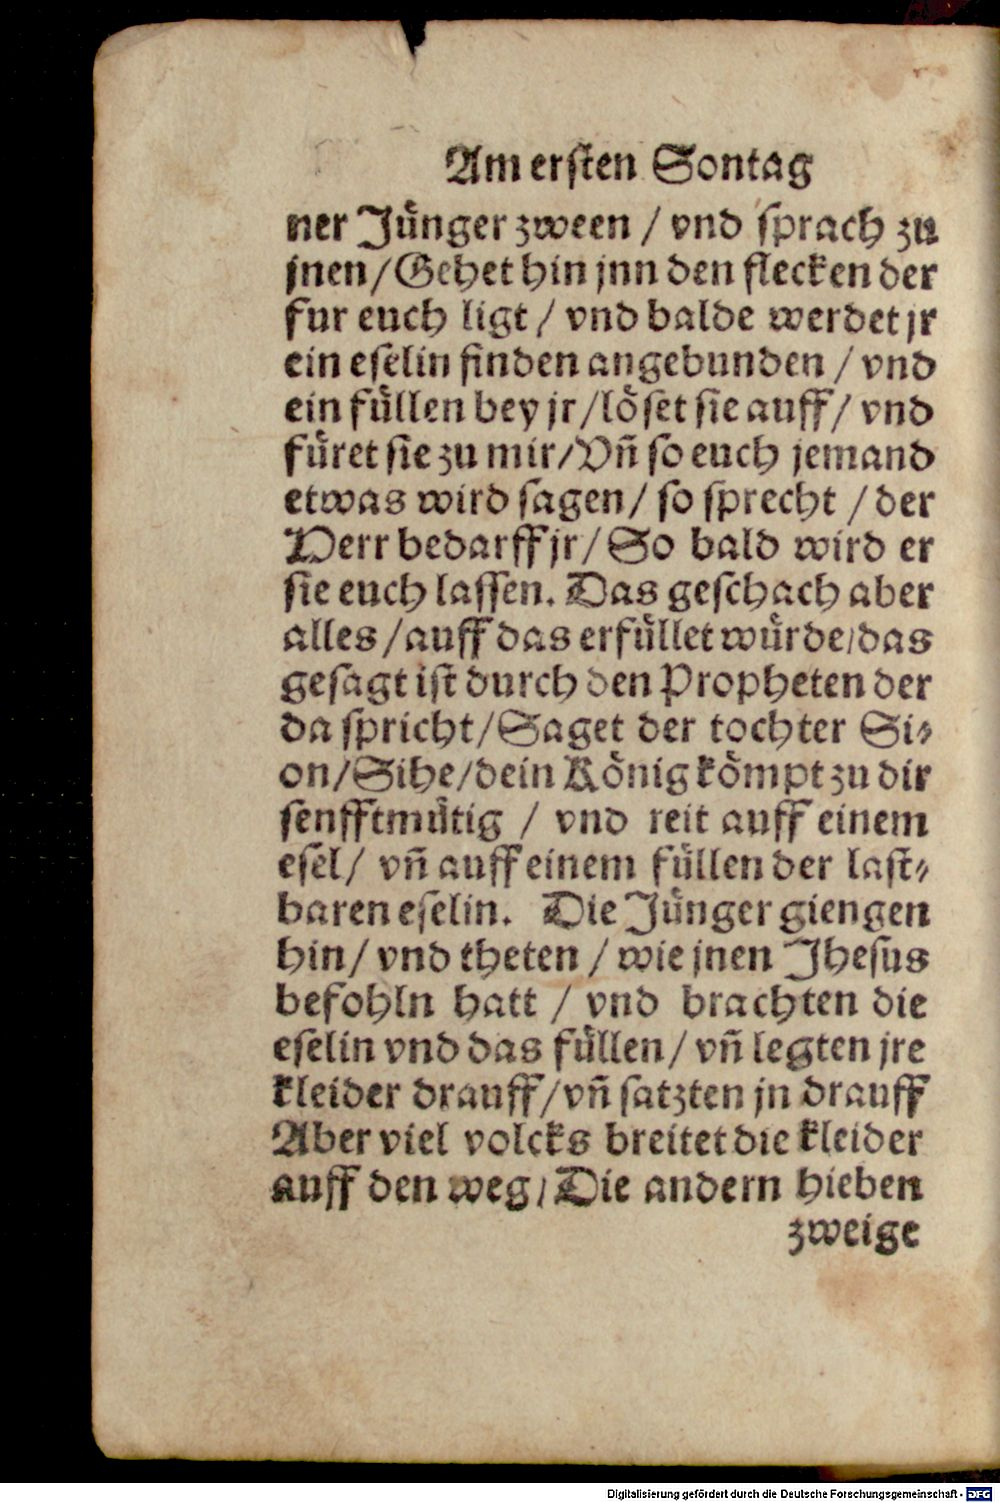 Am ersten Sontag
ner Jünger zween / vnd sprach zu
jnen / Gehet hin jnn den flecken der
fur euch ligt / vnd balde werdet jr
ein eselin finden angebunden / vnd
ein füllen bey jr / löset sie auff / vnd
füret sie zu mir / Vñ so euch jemand
etwas wird sagen / so sprecht / der
Herr bedarff jr / So bald wird er
sie euch lassen. Das geschach aber
alles / auff das erfüllet würde / das
gesagt ist durch den Propheten der
da spricht / Saget der tochter Si⸗
on / Sihe / dein König kömpt zu dir
senfftmütig / vnd reit auff einem
esel / vñ auff einem füllen der last⸗
baren eselin. Die Jünger giengen
hin / vnd theten / wie jnen Jhesus
befohln hatt / vnd brachten die
eselin vnd das füllen / vñ legten jre
kleider drauff / vñ satzten jn drauff
Aber viel volcks breitet die kleider
auff den weg / Die andern hieben
zweige
Digitalisierung gefördert durch die Deutsche Forschungsgemeinschaft - DFG